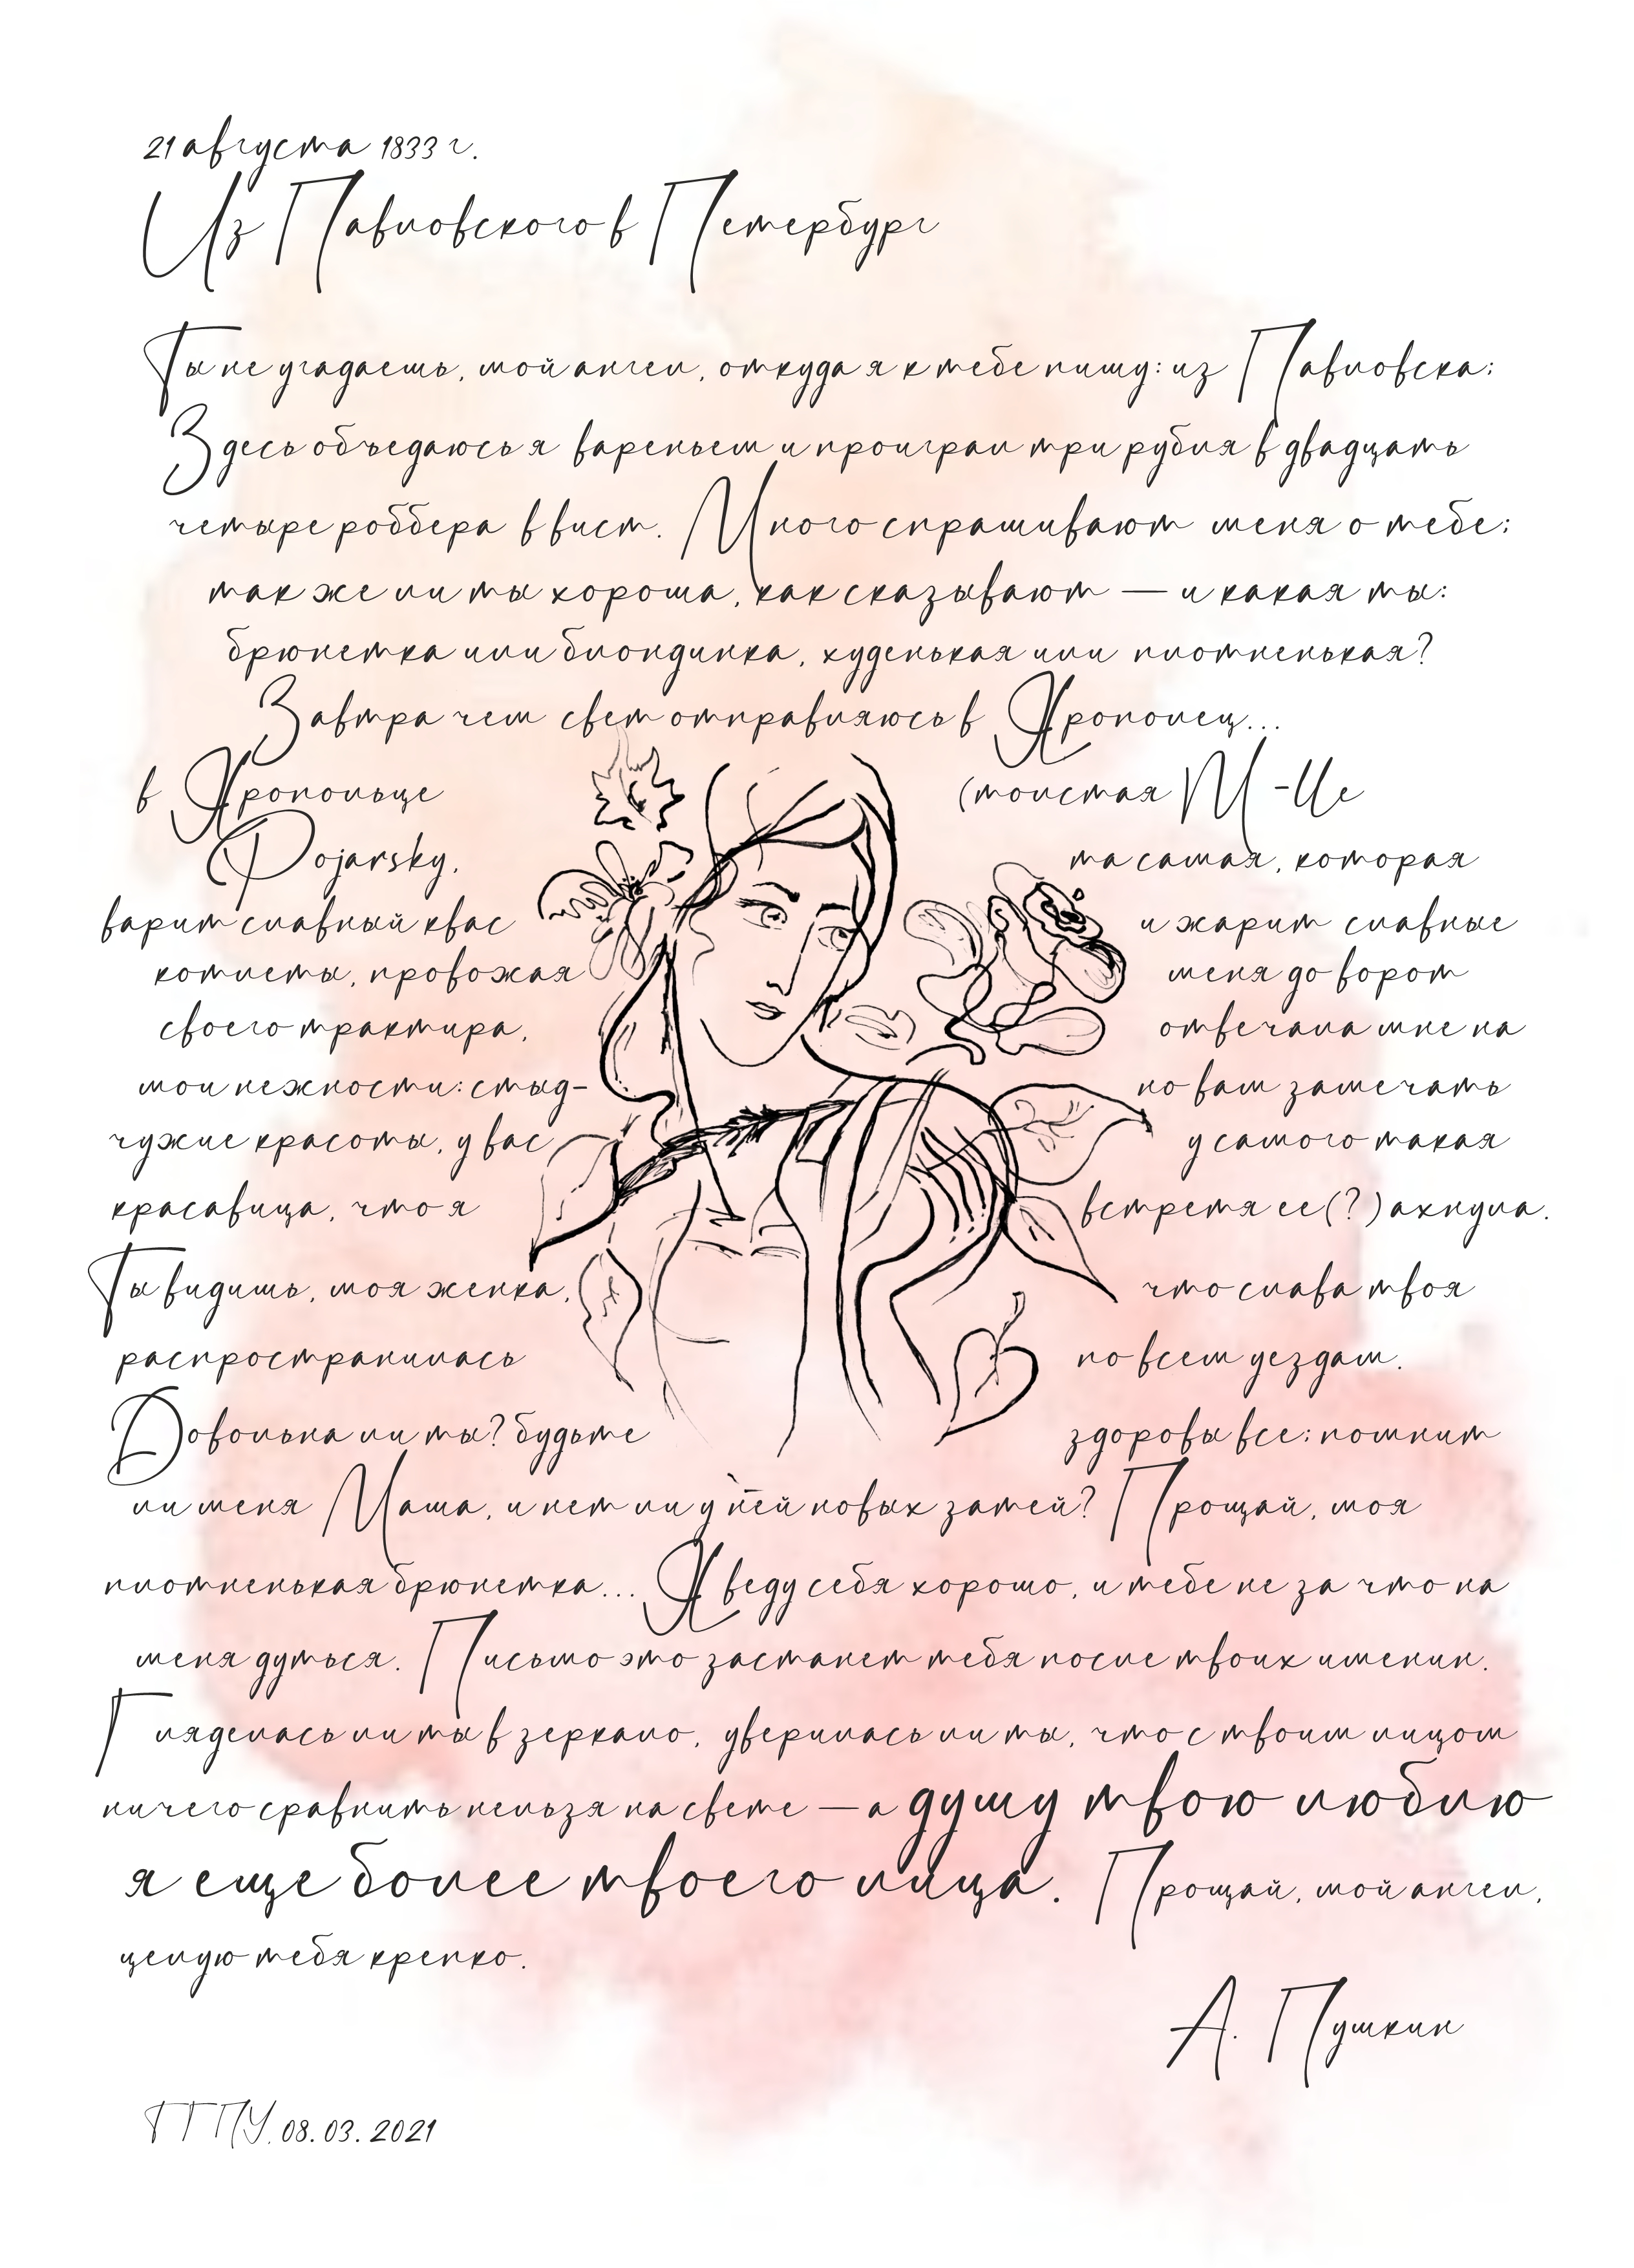 21 августа 1833 г.
Из Павловского в Петербург
Ты не угадаешь, мой ангел, откуда я к тебе пишу: из Павловска;
Здесь объедаюсь я вареньем и проиграл три рубля в двадцать
четыре роббера в вист. Много спрашивают меня о тебе;
так же ли ты хороша, как сказывают — и какая ты:
брюнетка или блондинка, худенькая или плотненькая?
Завтра чем свет отправляюсь в Ярополец...
в Яропольце (толстая M-lle
Pojarsky, та самая, которая
варит славный квас и жарит славные
котлеты, провожая меня до ворот
своего трактира, отвечала мне на
мои нежности: стыд- но вам замечать
чужие красоты, у вас у самого такая
красавица, что я встретя ее(?) ахнула.
Ты видишь, моя женка, что слава твоя
распространилась по всем уездам.
Довольна ли ты? будьте здоровы все; помнит
ли меня Маша, и нет ли у ней новых затей? Прощай, моя
плотненькая брюнетка... Я веду себя хорошо, и тебе не за что на
меня дуться. Письмо это застанет тебя после твоих именин.
Гляделась ли ты в зеркало, уверилась ли ты, что с твоим лицом
ничего сравнить нельзя на свете — а душу твою люблю
я еще более твоего лица. Прощай, мой ангел,
целую тебя крепко.
А. Пушкин
ТГПУ. 08.03.2021